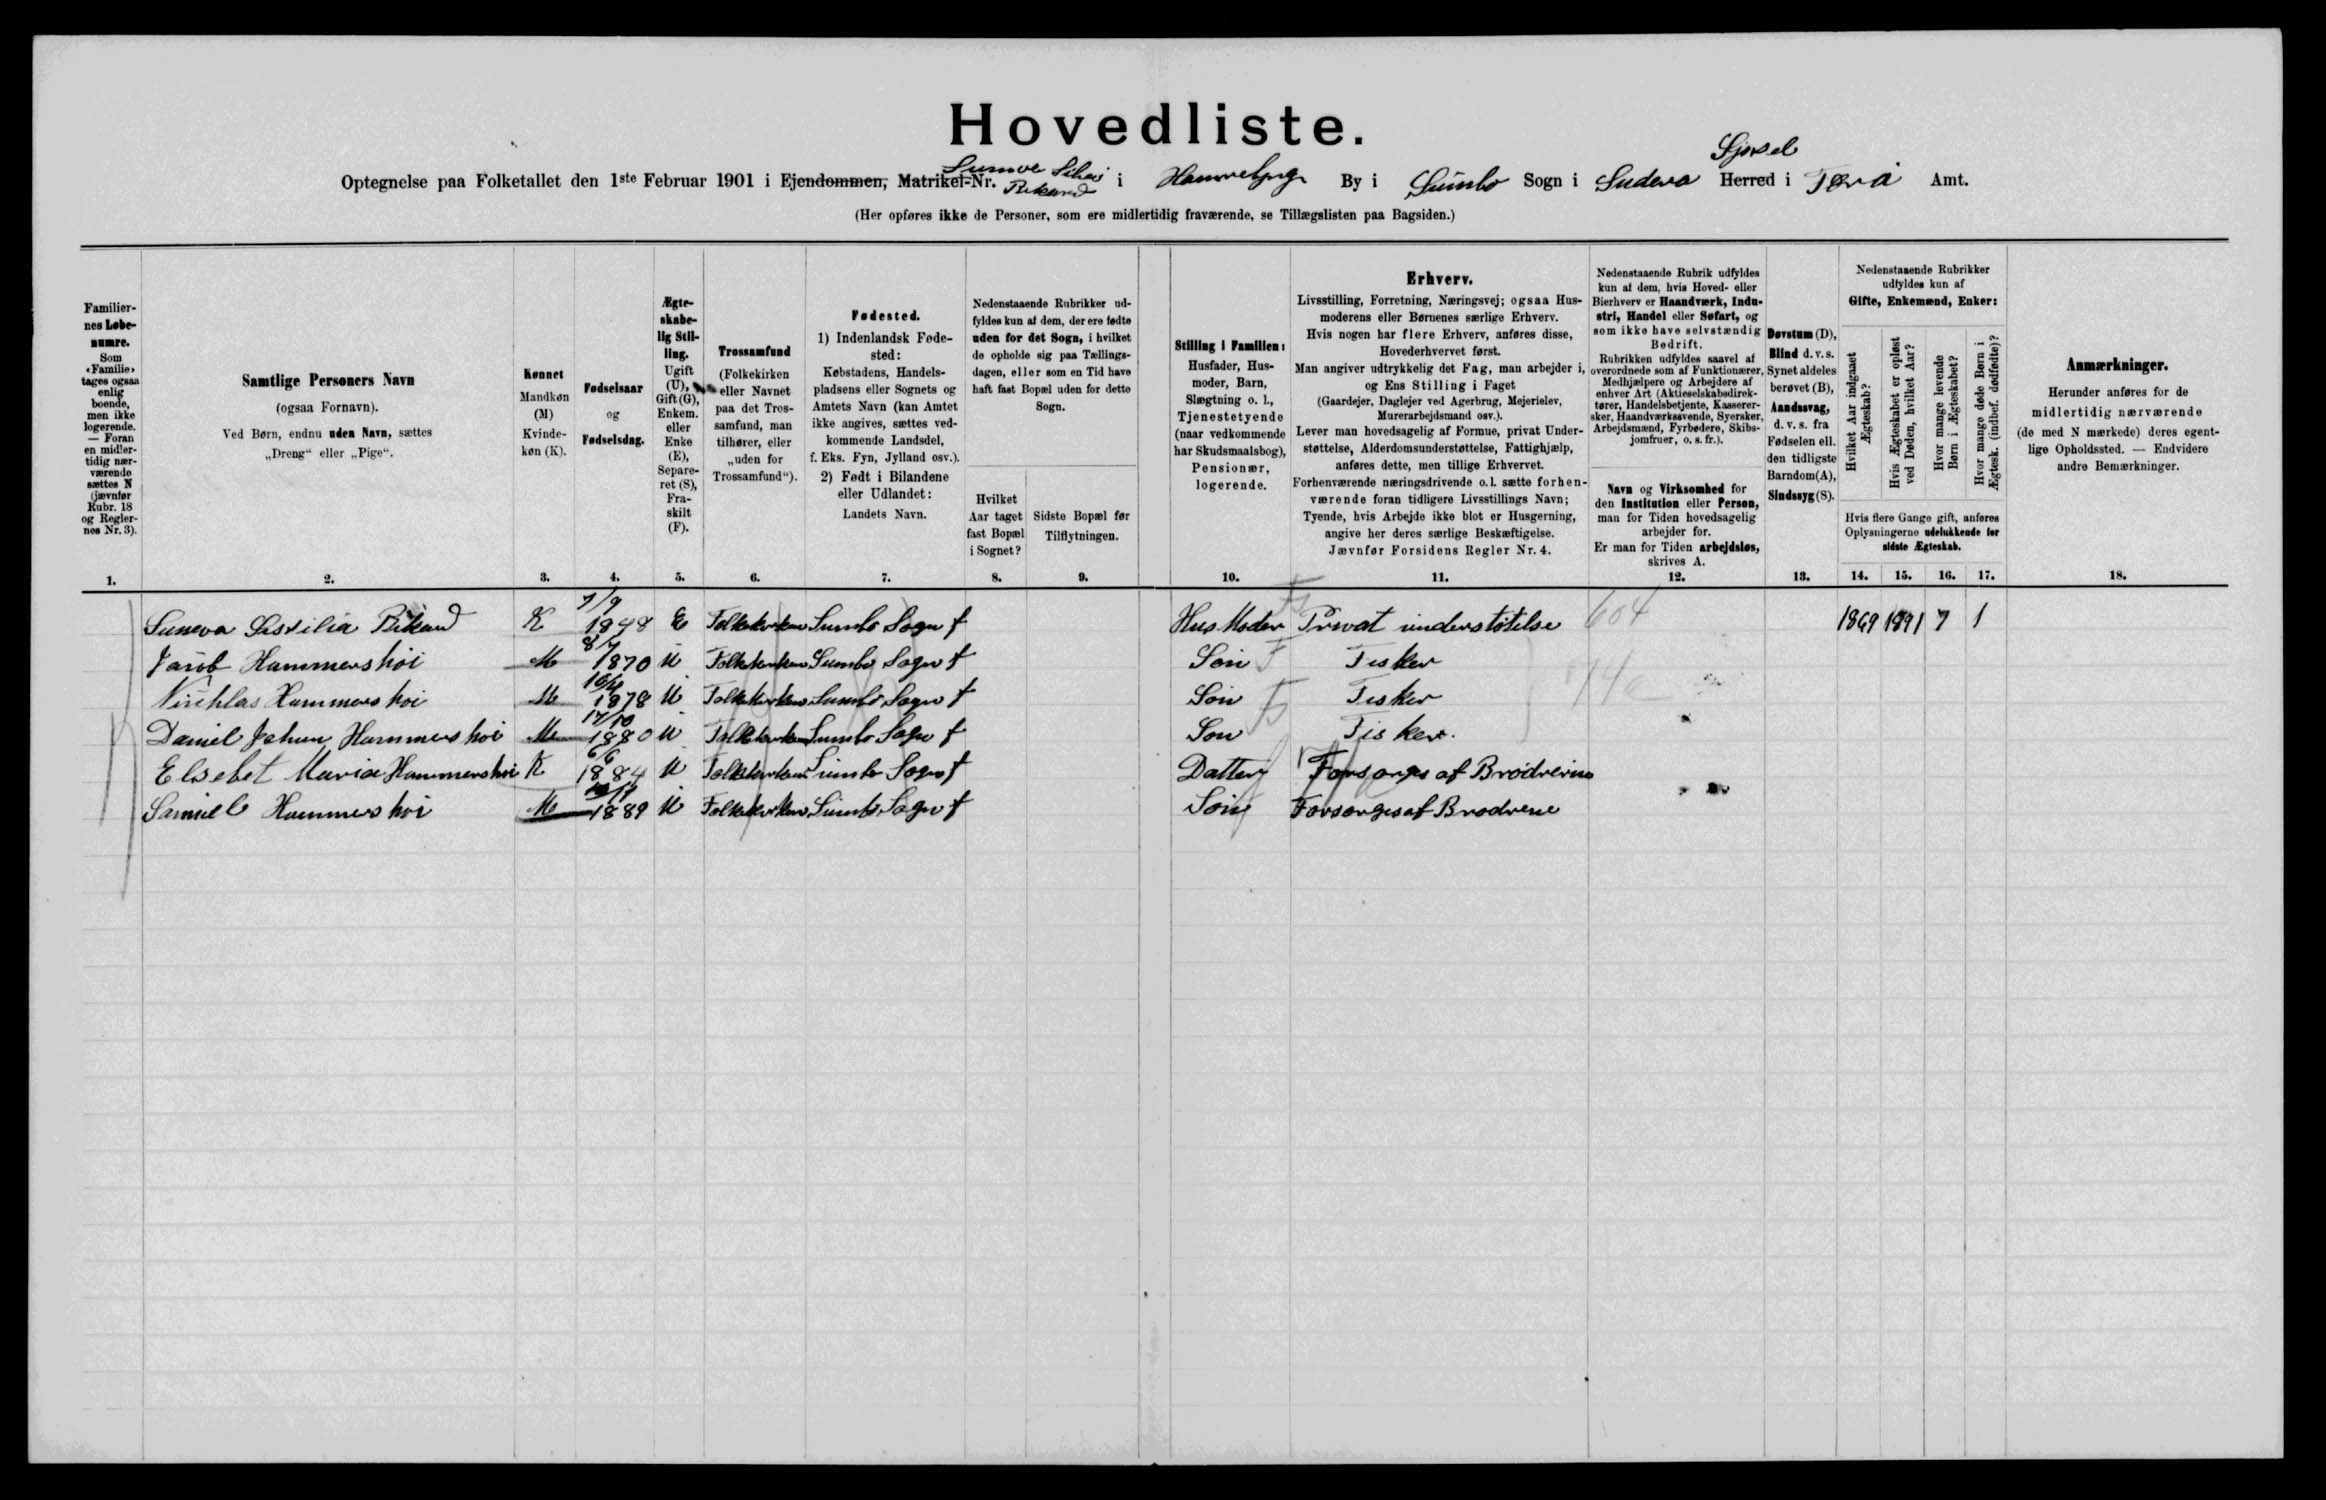 Hovedliste.
Optegnelse paa Folketallet den 1ste Februar 1901 i Ejendommen, Matrikel-Nr. i By i Sumbo Sogn i Sudera Herred i Amt.
(Her opføres ikke de Personer, som ere midlertidig fraværende, se Tillægslisten paa Bagsiden.)
Familiernes Løbenumre.
Som «Familie» tages ogsaa enlig boende, men ikke logerende. — Foran en midlertidig nærværende sættes N (jævnfør Rubr. 18 og Reglernes Nr. 3).
1.
Samtlige Personers Navn
(ogsaa Fornavn).
Ved Børn, endnu uden Navn, sættes
„Dreng“ eller „Pige“.
2.
Kønnet
Mandkøn (M)
Kvindekøn (K).
3.
Fødselsaar
og
Fødselsdag.
4.
Ægteskabelig Stilling.
Ugift (U), Gift (G), Enkem. eller Enke (E), Separeret (S), Fraskilt (F).
5.
Trossamfund
(Folkekirken eller Navnet paa det Trossamfund, man tilhører, eller „uden for Trossamfund“).
6.
Fødested.
1) Indenlandsk Fødested:
Købstadens, Handelspladsens eller Sognets og Amtets Navn (kan Amtet ikke angives, sættes vedkommende Landsdel, f. Eks. Fyn, Jylland osv.).
2) Født i Bilandene eller Udlandet:
Landets Navn.
7.
Nedenstaaende Rubrikker udfyldes kun af dem, der ere fødte uden for det Sogn, i hvilket de opholde sig paa Tællingsdagen, eller som en Tid have haft fast Bopæl uden for dette Sogn.
Hvilket Aar taget fast Bopæl i Sognet?
8.
Sidste Bopæl før Tilflytningen.
9.
Stilling i Familien:
Husfader, Husmoder, Barn, Slægtning o. l., Tjenestetyende (naar vedkommende har Skudsmaalsbog), Pensionær, logerende.
10.
Erhverv.
Livsstilling, Forretning, Næringsvej; ogsaa Husmoderens eller Børnenes særlige Erhverv.
Hvis nogen har flere Erhverv, anføres disse, Hovederhvervet først.
Man angiver udtrykkelig det Fag, man arbejder i, og Ens Stilling i Faget
(Gaardejer, Daglejer ved Agerbrug, Mejerielev, Murerarbejdsmand osv.).
Lever man hovedsagelig af Formue, privat Understøttelse, Alderdomsunderstøttelse, Fattighjælp, anføres dette, men tillige Erhvervet.
Forhenværende næringsdrivende o.l. sætte forhenværende foran tidligere Livsstillings Navn;
Tyende, hvis Arbejde ikke blot er Husgerning, angive her deres særlige Beskæftigelse.
Jævnfør Forsidens Regler Nr. 4.
11.
Nedenstaaende Rubrik udfyldes kun af dem, hvis Hoved- eller Bierhverv er Haandværk, Industri, Handel eller Søfart, og som ikke have selvstændig Bedrift.
Rubrikken udfyldes saavel af overordnede som af Funktionærer, Medhjælpere og Arbejdere af enhver Art (Aktieselskabsdirektører, Handelsbetjente, Kasserersker, Haandværkssvende, Syersker, Arbejdsmænd, Fyrbødere, Skibsjomfruer, o. s. fr.).
Navn og Virksomhed for den Institution eller Person, man for Tiden hovedsagelig arbejder for.
Er man for Tiden arbejdsløs, skrives A.
12.
Døvstum (D), Blind d. v. s. Synet aldeles berøvet (B), Aandssvag, d. v. s. fra Fødselen ell. den tidligste Barndom (A), Sindssyg (S).
13.
Nedenstaaende Rubrikker udfyldes kun af
Gifte, Enkemænd, Enker:
Hvilket Aar indgaaet Ægteskab?
Hvis Ægteskabet er opløst ved Døden, hvilket Aar?
Hvor mange levende Børn i Ægteskabet?
Hvor mange døde Børn i Ægtesk. (indbef. dødfødte)?
Hvis flere Gange gift, anføres Oplysningerne udelukkende for sidste Ægteskab.
14. 15. 16. 17.
Anmærkninger.
Herunder anføres for de midlertidig nærværende (de med N mærkede) deres egentlige Opholdssted. — Endvidere andre Bemærkninger.
18.
Suneva Sisilia K 7/9 1848 E Folkekirken Sumbo Sogn Hus Moder Privat understøtelse 604 1869 1891 7 1
Jacob Hammershøi M 1870 U Folkekirken Sumbo Sogn Søn Fisker
Hammershøi M 1878 U Folkekirken Sumbo Sogn Søn Fisker
Daniel Johan Hammershøi M 17/10 1880 U Folkekirken Sumbo Sogn Søn Fisker.
Elsebet Maria Hammershøi K 6/6 1884 U Folkekirken Sumbo Sogn Datter Forsørges af Brødrene
Samuel Hammershøi M 1889 U Folkekirken Sumbo Sogn Søn Forsørges af Brødrene